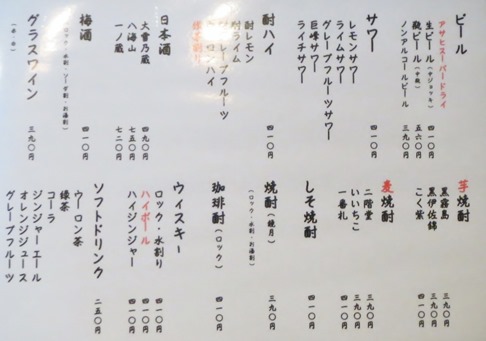 ビール
アサヒスーパードライ
生ビール(中ジョッキ) 四一〇円
瓶ビール(中瓶) 五六〇円
ノンアルコールビール 三九〇円
サワー 四一〇円
レモンサワー
ライムサワー
グレープフルーツサワー
巨峰サワー
ライチサワー
酎ハイ 四一〇円
酎レモン
酎ライム
グレープフルーツ
日本酒
大雪乃蔵 四九〇円
八海山 七五〇円
一ノ蔵 七二〇円
梅酒 四一〇円
(ロック・水割・ソーダ割・お湯割)
グラスワイン 三九〇円
(赤・白)
芋焼酎
黒霧島 三九〇円
黒伊佐錦 三九〇円
こく紫 四一〇円
麦焼酎
二階堂 三九〇円
いいちこ 三九〇円
一番札 四一〇円
しそ焼酎 四一〇円
焼酎(鏡月) 三九〇円
(ロック・水割・お湯割)
珈琲酎(ロック) 四一〇円
ウィスキー
ロック・水割り 四一〇円
ハイボール 四一〇円
ハイジンジャー 四一〇円
ソフトドリンク 二五〇円
ウーロン茶
緑茶
コーラ
ジンジャーエール
オレンジジュース
グレープフルーツ